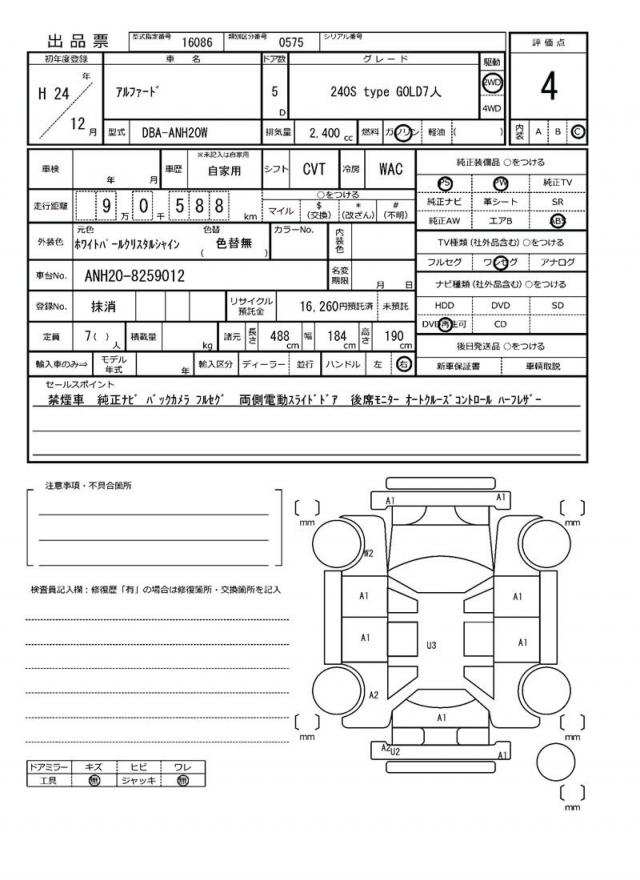 出品票 型式指定番号 16086 類別区分番号 0575 シリアル番号
初年度登録 車名 ドア数 グレード 駆動 評価点
H 24 年 12 月 ｱﾙﾌｧｰﾄﾞ 5 D 240S type GOLD7人 2WD 4WD 4
型式 DBA-ANH20W 排気量 2,400 cc 燃料 ガソリン 軽油 ( ) 内装 A B C
車検 年 月 車歴 ※未記入は自家用 自家用 シフト CVT 冷房 WAC 純正装備品 ○をつける
PS PW 純正TV
走行距離 9 万 0 千 5 8 8 km ○をつける 純正ナビ 革シート SR
マイル $ (交換) * (改ざん) # (不明) 純正AW エアB ABS
外装色 元色 ﾎﾜｲﾄﾊﾟｰﾙｸﾘｽﾀﾙｼｬｲﾝ 色替 ( 色替無 ) カラーNo. 内装色 TV種類(社外品含む)○をつける
フルセグ ワンセグ アナログ
車台No. ANH20-8259012 名変期限 月 日 ナビ種類(社外品含む)○をつける
登録No. 抹消 リサイクル預託金 16,260円預託済 未預託 HDD DVD SD
DVD再生可 CD
定員 7( ) 人 積載量 kg 諸元 長さ 488 cm 幅 184 cm 高さ 190 cm 後日発送品 ○をつける
輸入車のみ⇒ モデル年式 年 輸入区分 ディーラー 並行 ハンドル 左 右 新車保証書 車輌取説
セールスポイント
禁煙車 純正ﾅﾋﾞ ﾊﾞｯｸｶﾒﾗ ﾌﾙｾｸﾞ 両側電動ｽﾗｲﾄﾞﾄﾞｱ 後席ﾓﾆﾀｰ ｵｰﾄｸﾙｰｽﾞｺﾝﾄﾛｰﾙ ﾊｰﾌﾚｻﾞｰ
注意事項・不具合箇所
A1 A1
mm mm
W2
検査員記入欄：修復歴「有」の場合は修復箇所・交換箇所を記入
A1 A1
A1 U3 A1
A2
A1
mm mm
A2 U2 A1
ドアミラー キズ ヒビ ワレ
工具 無 ジャッキ 無
mm